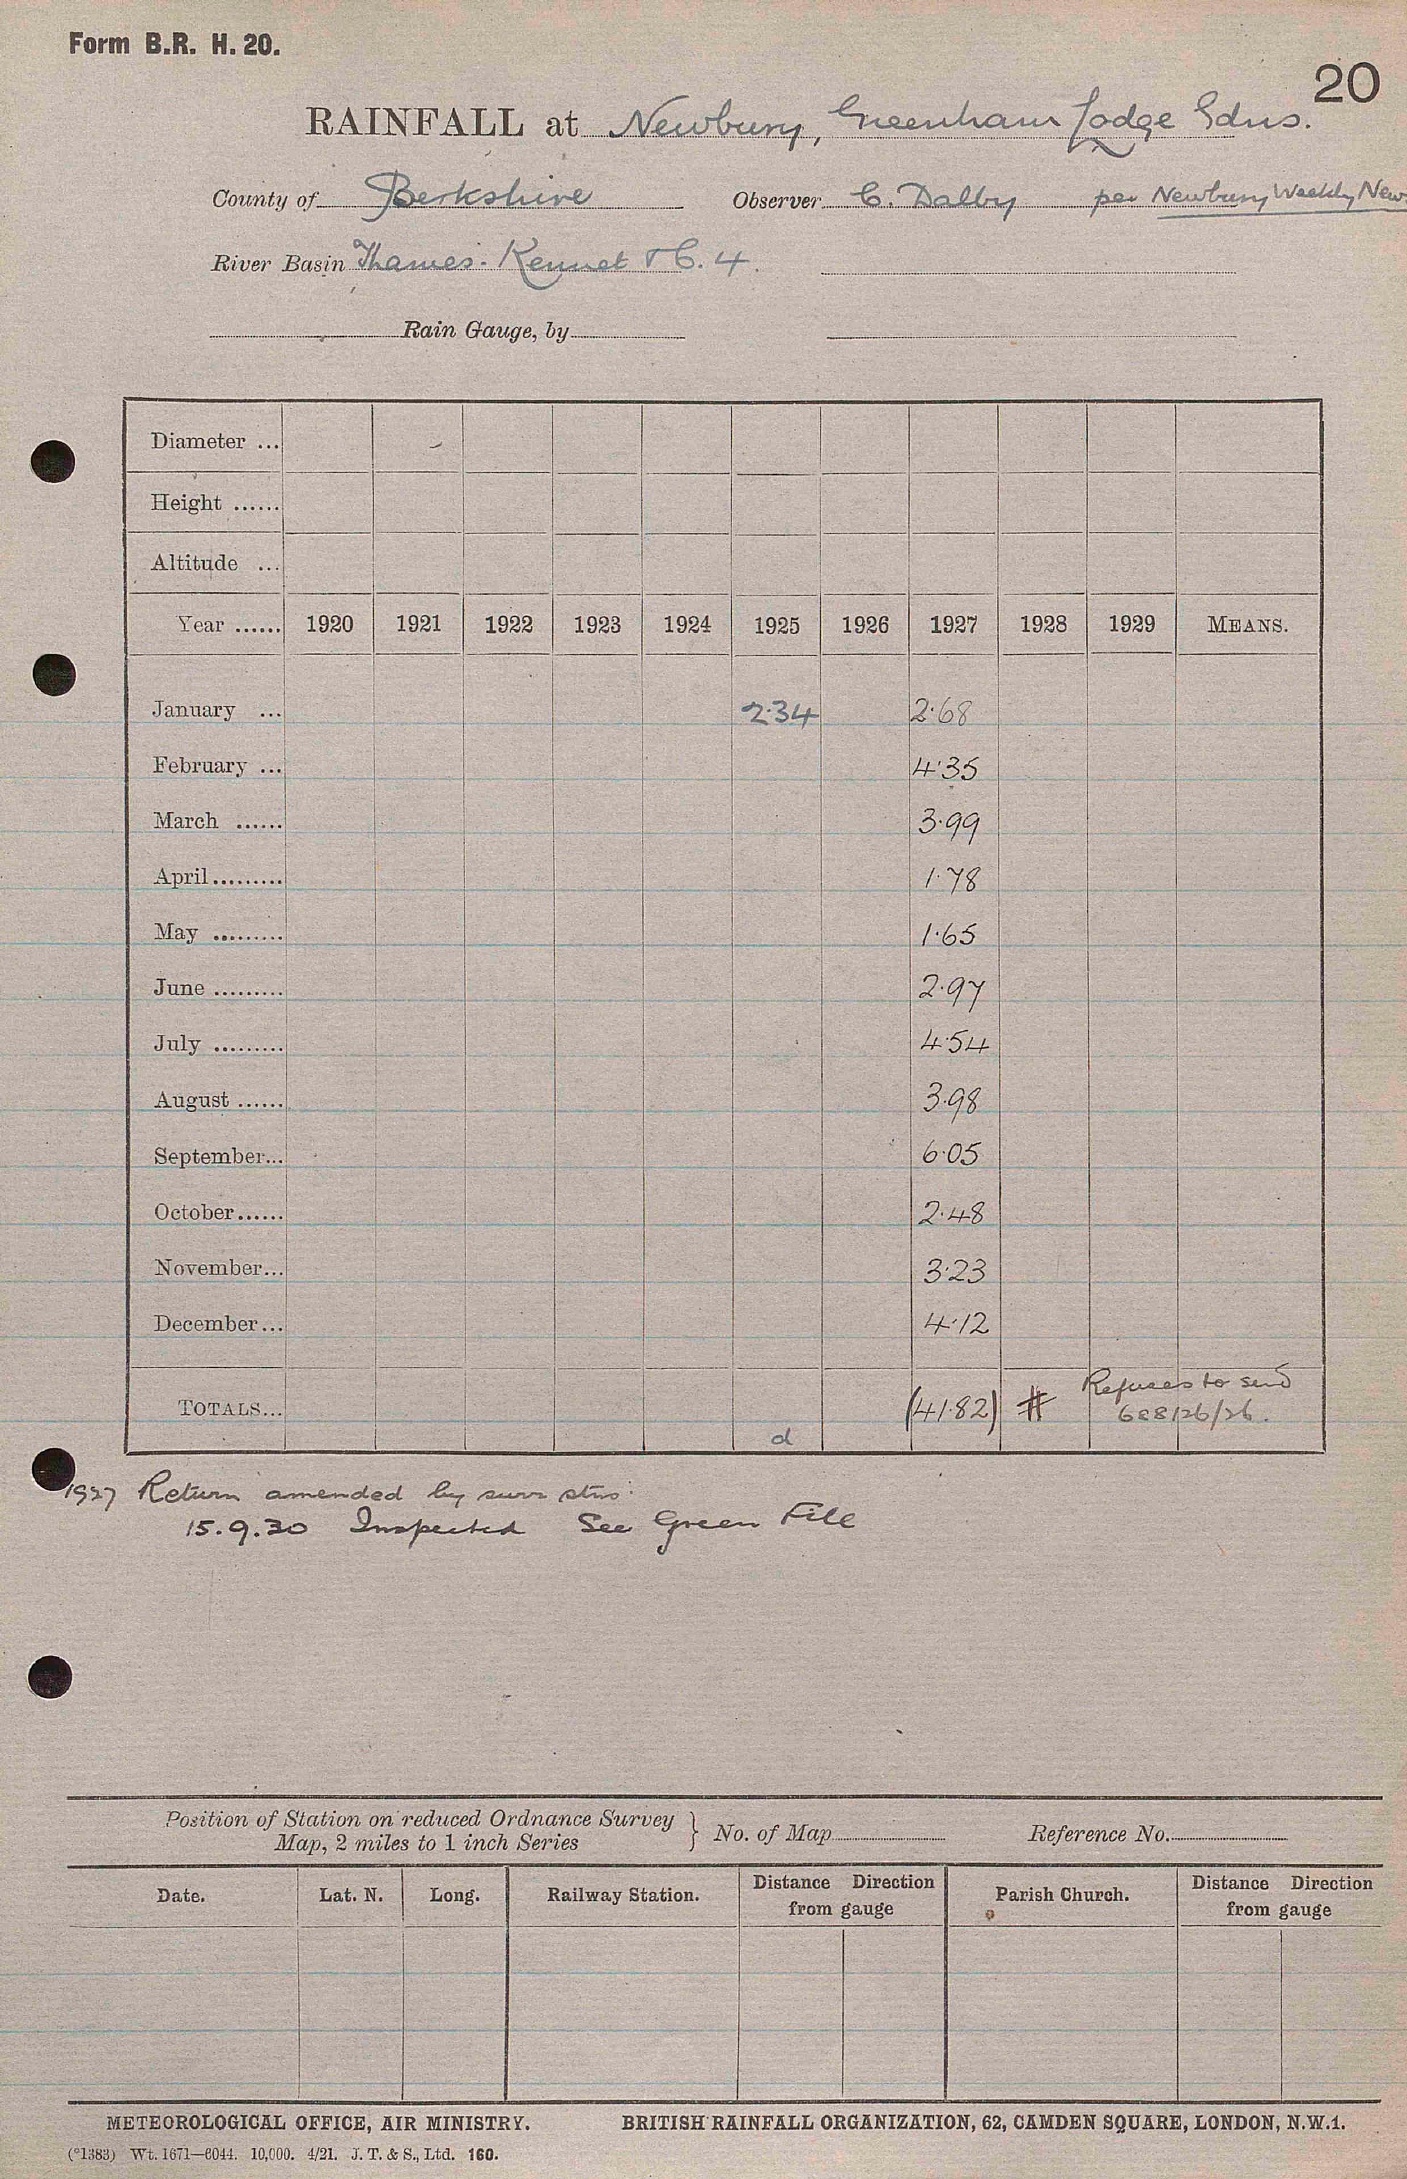 Form B.R. H. 20.
20
RAINFALL at Newbury, Greenham Lodge Gdns.
County of Berkshire Observer C. Dalby per Newbury Weekly News
River Basin Thames. Kennet & C. 4.
Rain Gauge, by
Diameter ...
Height ......
Altitude ...
Year ...... 1920 1921 1922 1923 1924 1925 1926 1927 1928 1929 MEANS.
January ... 2.34 2.68
February ... 4.35
March ...... 3.99
April ......... 1.78
May ......... 1.65
June ......... 2.97
July ......... 4.54
August ...... 3.98
September... 6.05
October...... 2.48
November... 3.23
December... 4.12
Refuses to send
TOTALS... d (41.82) # 688/26/26.
1927 Return amended by surr stns.
15.9.30 Inspected See Green File
Position of Station on reduced Ordnance Survey
Map, 2 miles to 1 inch Series } No. of Map Reference No.
Date. Lat. N. Long. Railway Station. Distance Direction from gauge Parish Church. Distance Direction from gauge
METEOROLOGICAL OFFICE, AIR MINISTRY. BRITISH RAINFALL ORGANIZATION, 62, CAMDEN SQUARE, LONDON, N.W.1.
(*1383) Wt. 1671—6044. 10,000. 4/21. J. T. & S., Ltd. 160.